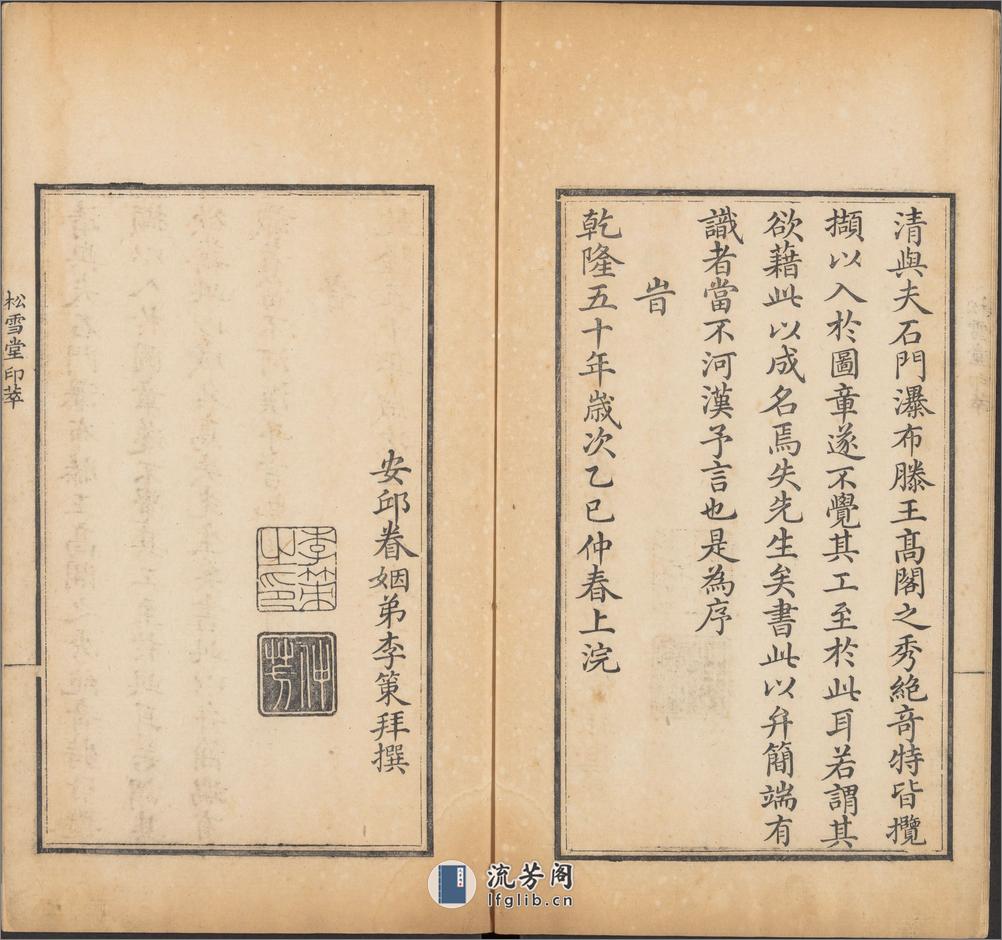 清與夫石門瀑布滕王髙閣之秀絶竒特皆攬
擷以入於圖章遂不覺其工至於此耳若謂其
欲藉此以成名焉失先生矣書此以弁簡端有
識者當不河漢予言也是為序
旹
乾隆五十年歲次乙巳仲春上浣
安邱眷姻弟李策拜撰
李策之印
仲芳
松雪堂印萃
流芳阁
lfglib.cn